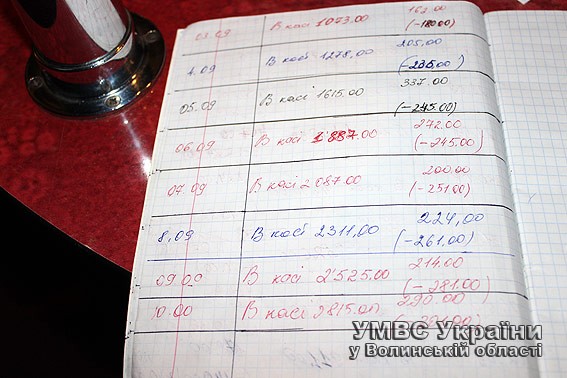 03.09 В касі 1073.00 162.00
(-180.00)
4.09 В касі 1278,00 205,00
(-235.00)
05.09 В касі 1615.00 337.00
(-245.00)
06.09 В касі 1887.00 272.00
(-245.00)
07.09 В касі 2087.00 200.00
(-251.00)
8,09 В касі 2311,00 224,00
(-261.00)
09.09 В касі 2525.00 214.00
(-281.00)
В касі 2815.00 290.00
УМВС України
у Волинській області